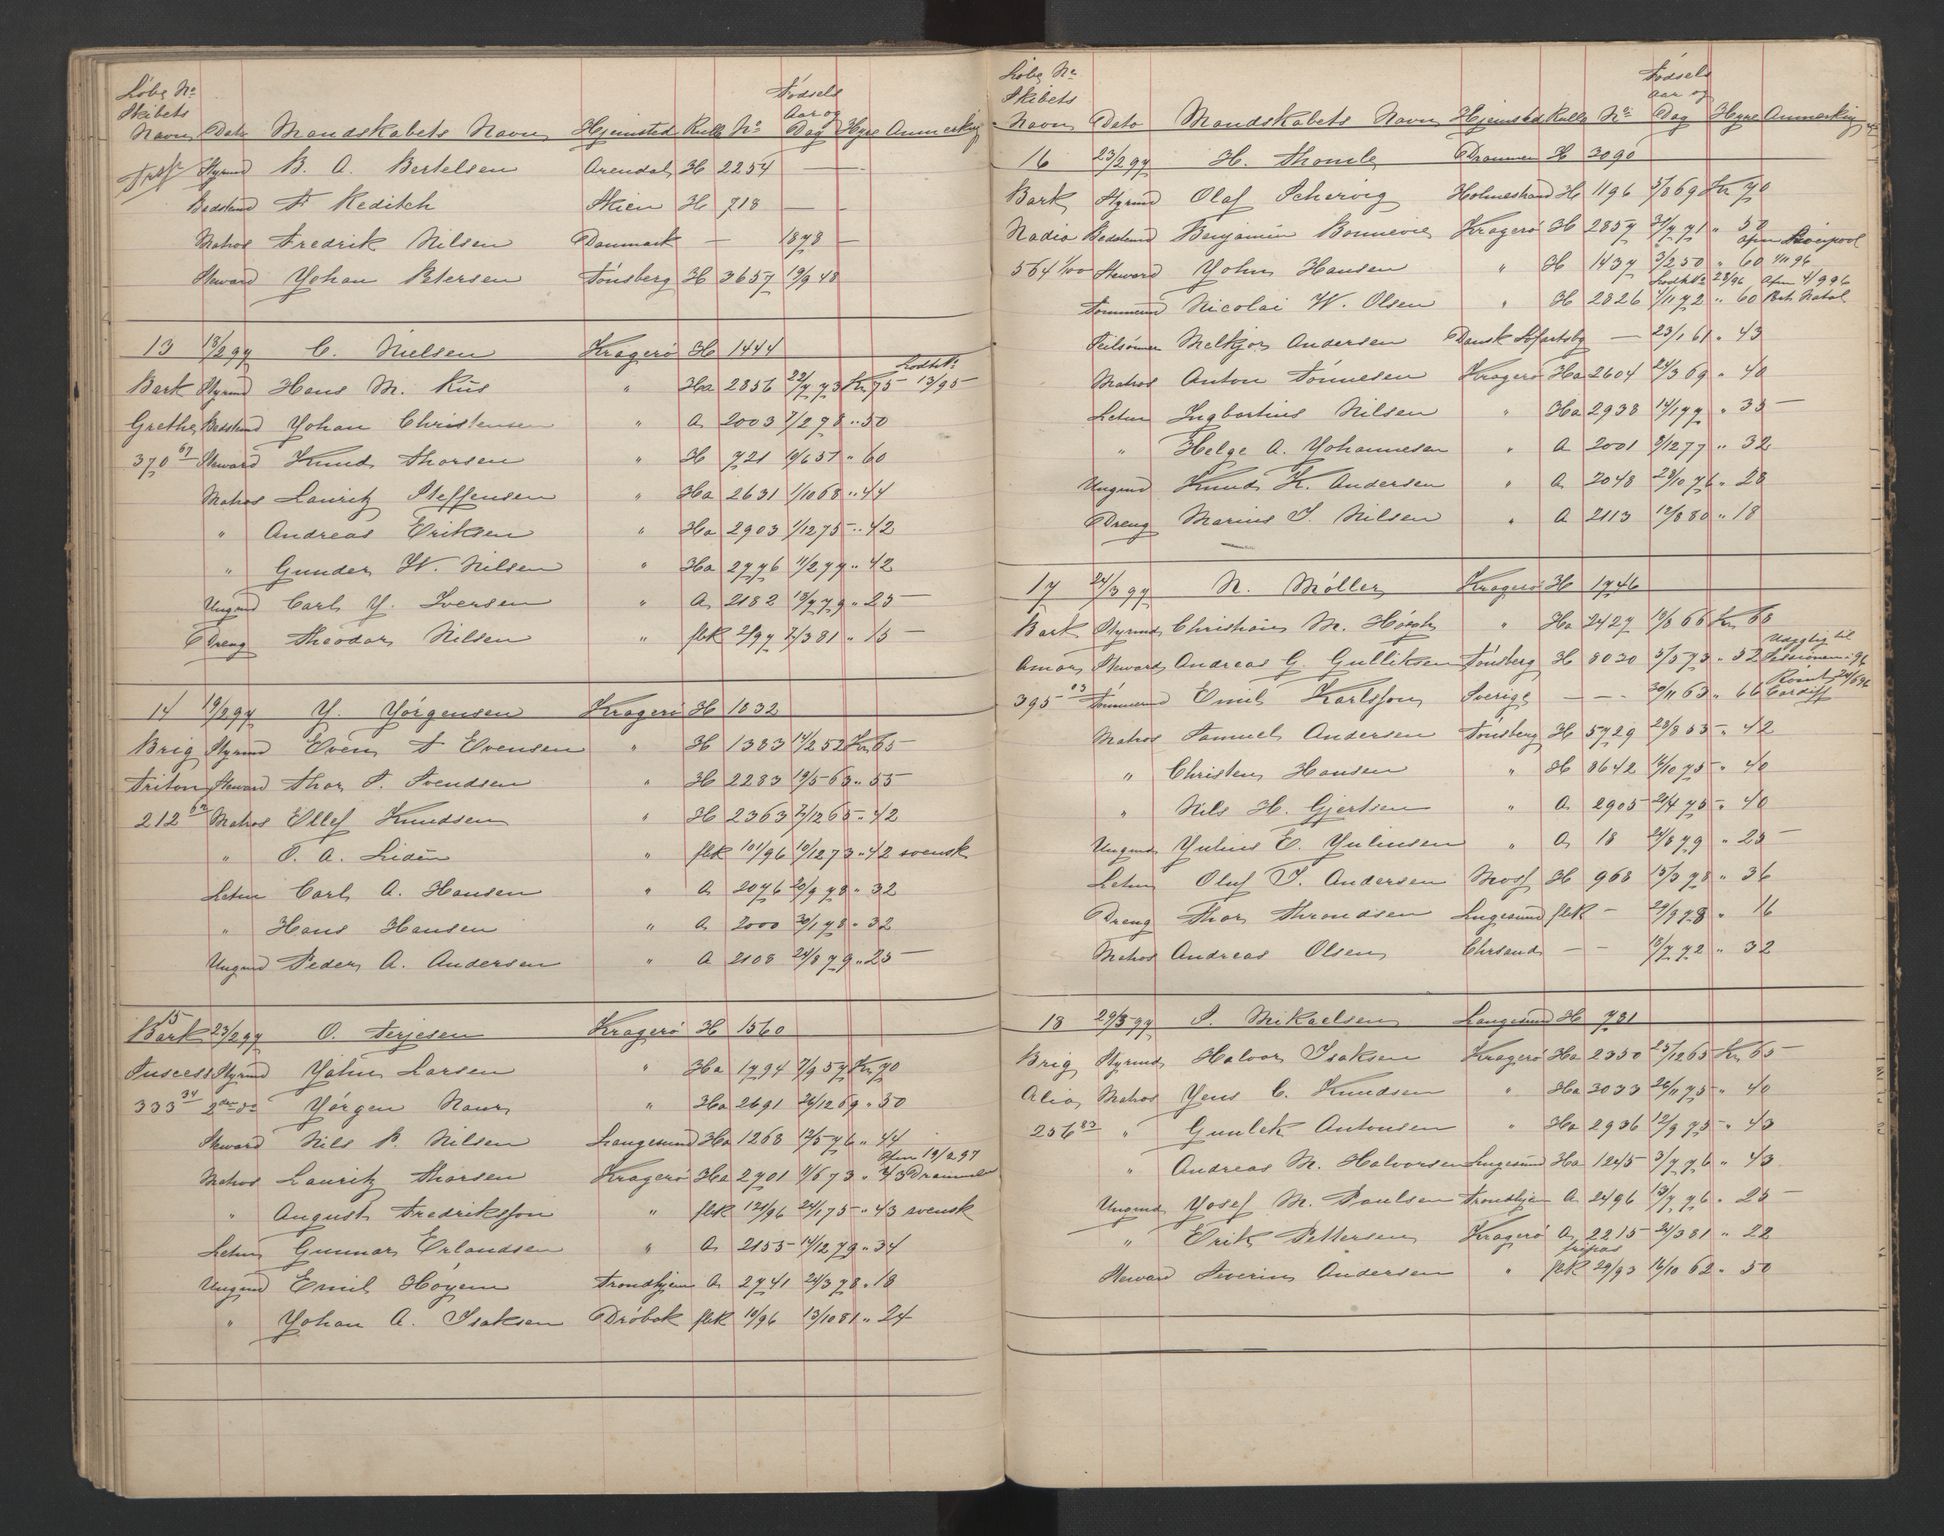 Löbe No
Skibets
Navn Dato Mandskabets Navn Hjemsted Rulle No Födsels Aar og Dag Hyre Anmerkning
Styrmd B. A. Bertelsen Arendal H 2254 — —
Bedstmd F Reditch Skien H 718 — —
Matros Fredrik Nilsen Danmark — 1878 —
Steward Johan Petersen Tönsberg H 3657 19/9 48
13 13/2 97 C. Nielsen Kragerö H 1444
Bark Styrmd Hans M. Riis " Ha 2856 22/7 73 Kr 75 — 13/95
Grethe Bedstmd Johan Christensen " A 2003 7/2 78 " 50
370 67 Steward Knud Thorsen " H 721 19/6 51 " 60
Matros Lauritz Steffensen " Ha 2631 1/10 68 " 44
" Andreas Eriksen " Ha 2903 1/12 75 " 42
" Gunder W. Nilsen " Ha 2776 11/2 77 " 42
Ungmd Carl J. Iversen " A 2182 13/7 79 " 25 —
Dreng Theodor Nilsen " flk 2/97 7/3 81 " 15 —
14 19/2 97 J. Jörgensen Kragerö H 1032
Brig Styrmd Even T Evensen " H 1383 14/2 52 Kr 65 —
Triton Steward Thor S. Svendsen " H 2283 19/5 63 " 55
212 Matros Ellef Knudsen " H 2363 7/12 65 " 42
" O. A. Lidén " flk 101/96 10/12 73 " 42 svensk
Letm Carl A. Hansen " A 2076 20/9 78 " 32
" Hans Hansen " A 2000 30/1 78 " 32
Ungmd Peder A. Andersen " A 2108 24/8 79 " 25 —
15
Bark 23/2 97 O. Terjesen Kragerö H 1560
Success Styrmd John Larsen " Ha 1794 7/9 57 Kr 70
333 34 2den do Jörgen Naur " Ha 2691 26/12 69 " 50
Steward Nils P. Nilsen Langesund Ha 1268 12/5 76 " 44
Afm 19/2 97
Matros Lauritz Thorsen Kragerö Ha 2701 1/6 73 " 43 Drammen
" August Fredriksson " flk 121/96 24/1 75 " 43 svensk
Letm Gunnar Erlandsen " A 2155 14/12 79 " 34
Ungmd Emil Höyem Trondhjem A 2741 24/3 78 " 18
" Johan A. Isaksen Dröbak flk 10/96 13/10 81 " 24
Löbe No
Skibets
Navn Dato Mandskabets Navn Hjemsted Rulle No Födsels aar og Dag Hyre Anmerkning
16 23/2 97 H. Thomle Drammen H 3090
Bark Styrmd Olaf Schervig Holmestrand H 1196 5/8 69 Kr 70
Nadia Bedstmd Benjamin Bonnevie Kragerö H 2857 31/7 71 " 50
Afm Liverpool
564 1/100 Steward John Hansen " H 1437 3/2 50 " 60 1/11 96
Tömmermd Nicolai W. Olsen " H 2826 1/11 72 " 60 Port Natal
Seilsömer Melkjor Andersen Dansk Söfartsbg — 23/1 61 " 43
Matros Anton Tönnesen Kragerö Ha 2604 24/3 69 " 40
Letm Ingbartius Nilsen " Ha 2938 14/1 77 " 35 —
" Helge A. Johannesen " A 2001 8/12 77 " 32
Ungmd Knud K. Andersen " A 2048 23/10 76 " 28
Dreng Marius S. Nilsen " A 2113 12/8 80 " 18
17 24/3 97 N. Möller Kragerö H 1746
Bark Styrmd Christian M. Höegh " Ha 2427 10/8 66 Kr 68
Udygtig til
Amor Steward Andreas G. Gulliksen Tönsberg H 8030 5/5 73 " 52 Sessionen 96
395 03 Tömmermd Emil Karlsson Sverige — — 30/11 63 " 66 Cardiff
Matros Samuel Andersen Tönsberg H 5729 23/8 53 " 42
" Christen Hansen " H 8642 16/10 75 " 40
" Nils H. Gjertsen " A 2905 21/4 75 " 40
Ungmd Julius E. Juliusen " A 18 24/8 79 " 25 —
Letm Oluf I. Andersen Moss H 968 13/3 78 " 36
Dreng Thor Throndsen Langesund flk — 29/9 78 " 16
Matros Andreas Olsen Chrsand — — 18/7 72 " 32
18 29/3 97 S. Mikaelsen Langesund H 731
Brig Styrmd Halvor Isaksen Kragerö Ha 2350 25/12 65 Kr 65
Alia Matros Jens C. Knudsen " Ha 3033 26/11 75 " 40
256 83 " Gunlek Antonsen " Ha 2936 12/9 75 " 43
" Andreas M. Halvorsen Langesund Ha 1245 3/7 76 " 43
Ungmd Josef M. Paulsen Trondhjem A 2496 13/7 76 " 25 —
" Erik Pettersen Kragerö A 2215 24/3 81 " 22
fripas
Steward Severin Andersen " flk 29/93 16/10 62 " 50